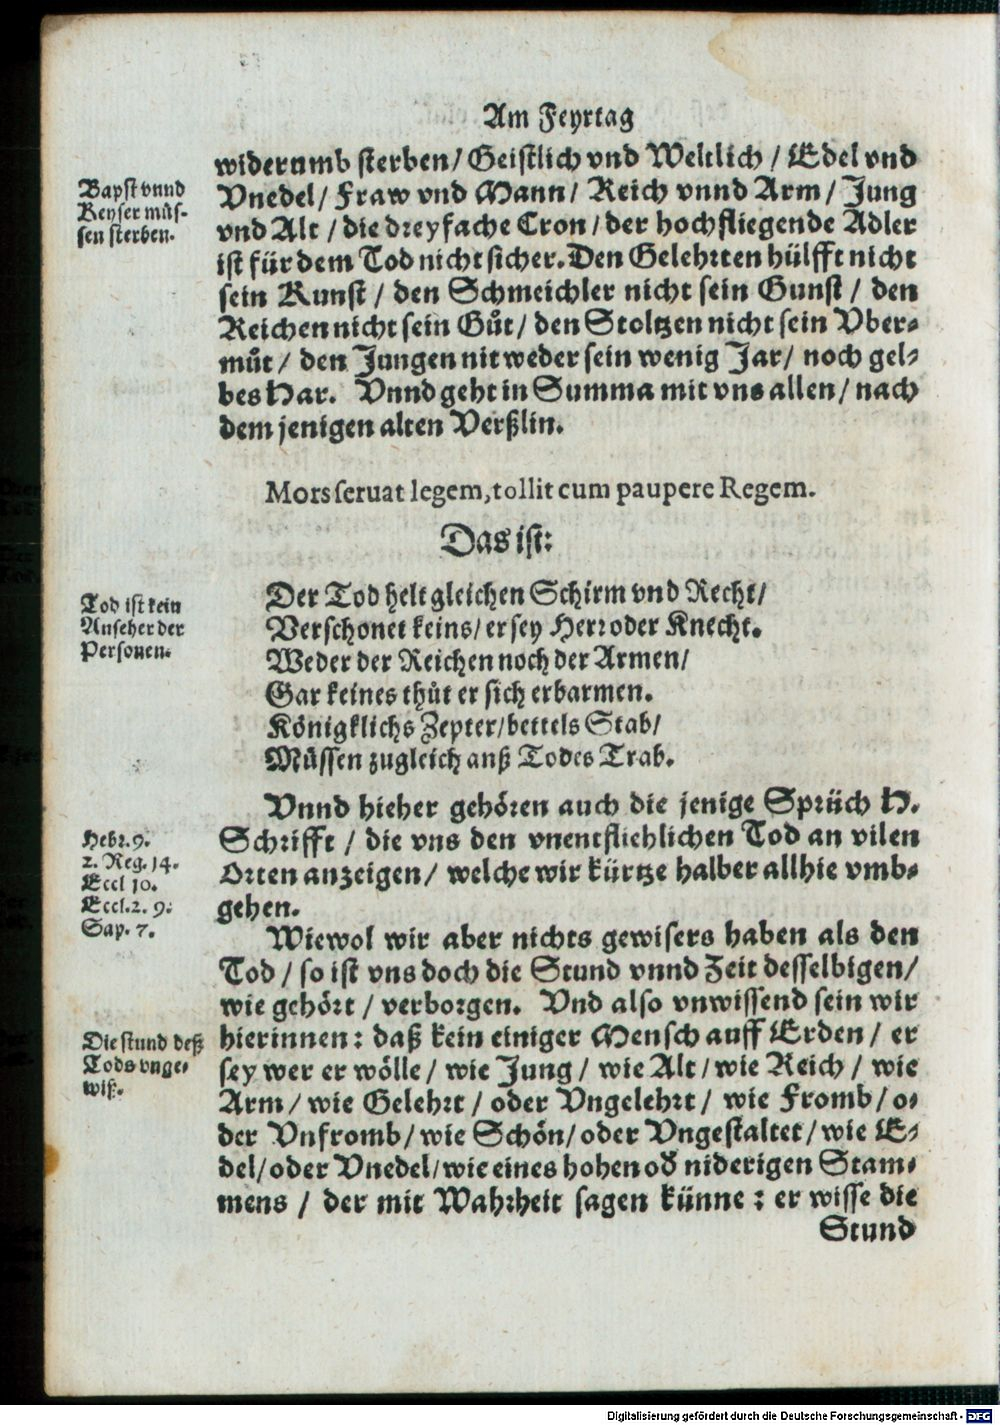 Am Feyrtag
widerumb sterben/ Geistlich vnd Weltlich / Edel vnd
Vnedel/ Fraw vnd Mann/ Reich vnnd Arm/ Jung
vnd Alt / die dreyfache Cron / der hochfliegende Adler
ist für dem Tod nicht sicher. Den Gelehrten hülfft nicht
sein Kunst / den Schmeichler nicht sein Gunst / den
Reichen nicht sein Gůt/ den Stoltzen nicht sein Vber-
můt / den Jungen nit weder sein wenig Jar/ noch gel-
bes Har. Vnnd geht in Summa mit vns allen / nach
dem jenigen alten Verßlin.
Bapst vnnd
Keyser müs-
sen sterben.
Mors seruat legem, tollit cum paupere Regem.
Das ist:
Der Tod helt gleichen Schirm vnd Recht/
Verschonet keins/ er sey Herr oder Knecht.
Weder der Reichen noch der Armen/
Gar keines thůt er sich erbarmen.
Königklichs Zepter/ bettels Stab/
Müssen zugleich anß Todes Trab.
Tod ist kein
Anseher der
Personen.
Vnnd hieher gehören auch die jenige Sprüch H.
Schrifft / die vns den vnentfliehlichen Tod an vilen
Orten anzeigen/ welche wir kürtze halber allhie vmb-
gehen.
Hebr. 9.
2. Reg. 14.
Eccl 10.
Eccl. 2. 9.
Sap. 7.
Wiewol wir aber nichts gewisers haben als den
Tod / so ist vns doch die Stund vnnd Zeit desselbigen/
wie gehört / verborgen. Vnd also vnwissend sein wir
hierinnen: daß kein einiger Mensch auff Erden / er
sey wer er wölle / wie Jung / wie Alt / wie Reich / wie
Arm / wie Gelehrt / oder Vngelehrt / wie Fromb / o-
der Vnfromb / wie Schön/ oder Vngestaltet / wie E-
del/ oder Vnedel/ wie eines hohen oď niderigen Stam-
mens / der mit Wahrheit sagen künne: er wisse die
Die stund deß
Tods vnge-
wiß.
Stund
Digitalisierung gefördert durch die Deutsche Forschungsgemeinschaft - DFG